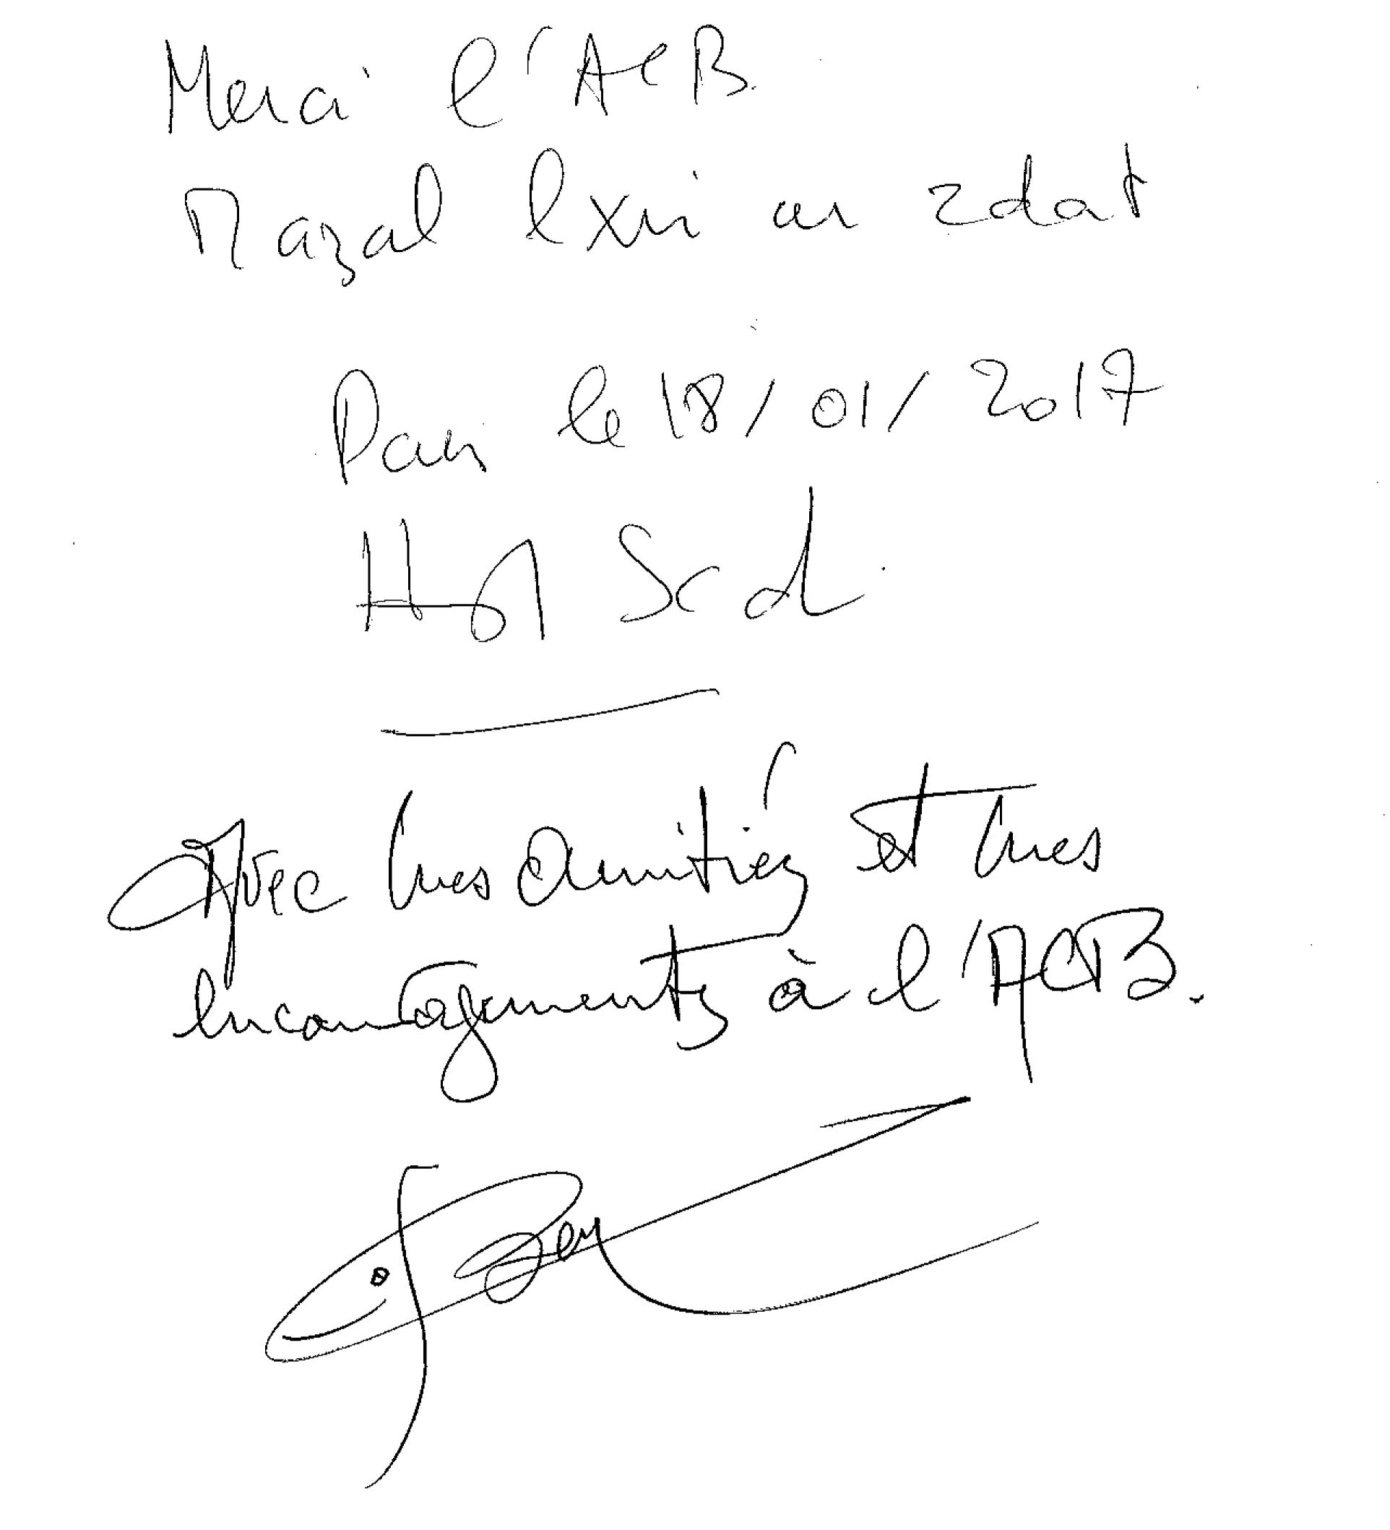 Merci l'ACB
Mazal lxir ar zdat
Paris le 18/01/2017
Sad
Avec mes amitiés et mes
encouragements à l'ACB.